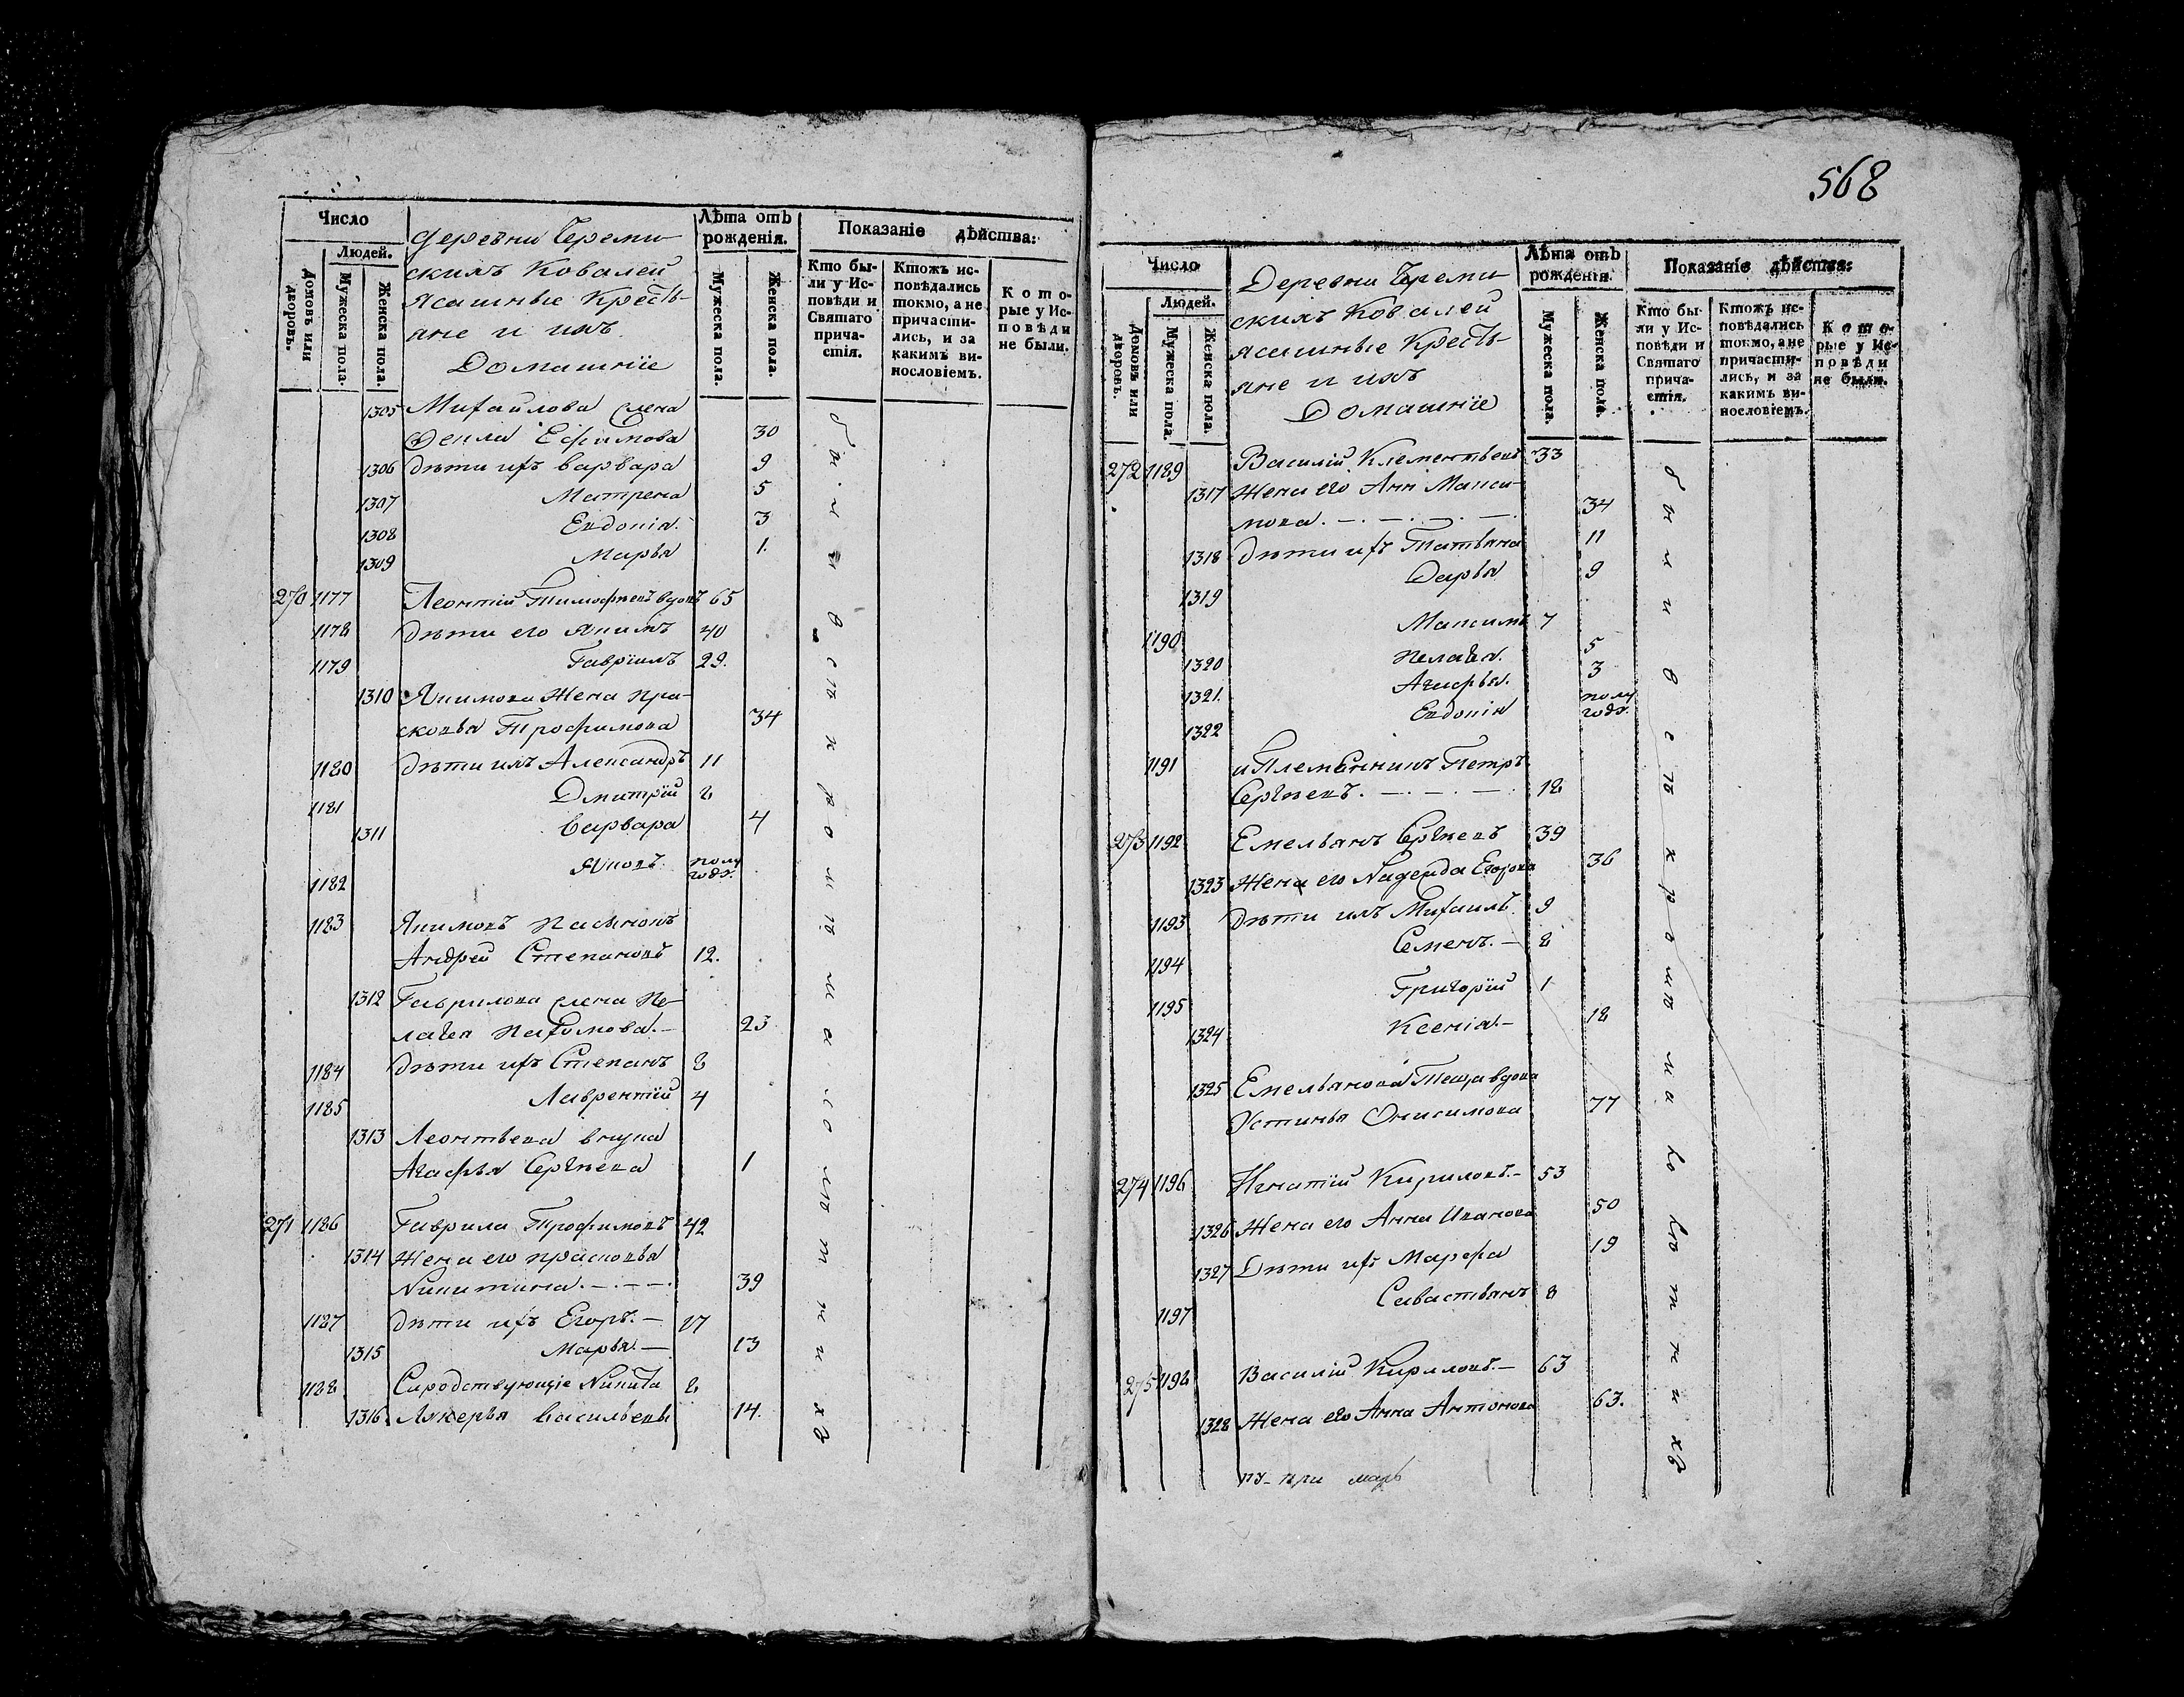 568
Число
Людей.
Домовъ или дворовъ.
Мужеска пола.
Женска пола.
Деревни Череми-
скихъ Ковалей
Ясашные Кресть-
яне и ихъ
Домашніе
Лѣта отъ
рожденія.
Мужеска пола.
Женска пола.
Показаніе дѣйства:
Кто бы-
ли у Ис-
повѣди и
Святаго
прича-
стія.
Ктожъ ис-
повѣдались
токмо, а не
причасти-
лись, и за
какимъ ви-
нословіемъ.
Кото-
рые у Ис-
повѣди
не были.
1305 Михайлова жена
Фекла Ефимова 30
1306 Дѣти ихъ Варвара 9
1307 Матрена 5
1308 Евдокія 3
1309 Марья 1.
270 1177 Леонтій Тимофѣевъ вдовъ 65
1178 Дѣти его Якимъ 40
1179 Гавріилъ 29.
1310 Якимова Жена Пра-
сковья Трофимова 34
1180 Дѣти ихъ Александръ 11
1181 Дмитрій 8
1311 Варвара 4
1182 Яковъ полу
годъ.
1183 Якимовъ Пасынокъ
Андрей Степановъ 12.
1312 Гаврилова жена Пе-
лагея Пахомова.- 23
1184 Дѣти ихъ Степанъ 8
1185 Лаврентій 4
1313 Леонтьева внука
Агафья Сергѣева 1
271 1186 Гаврила Трофимовъ 42
1314 Жена его Прасковья
Никитина. - . - . - . 39
1187 Дѣти ихъ Егоръ. - 17
1315 Марья. - 13
1188 Сиродствующіе Никита 8
1316 Лукерья Васильевы 14.
были
всѣ
кромѣ
малолѣтнихъ
Число
Людей.
Домовъ или дворовъ.
Мужеска пола.
Женска пола.
Деревни Череми-
скихъ Ковалей
Ясашные Кресть-
яне и ихъ
Домашніе
Лѣта отъ
рожденія.
Мужеска пола.
Женска пола.
Показаніе дѣйства:
Кто бы-
ли у Ис-
повѣди и
Святаго
прича-
стія.
Ктожъ ис-
повѣдались
токмо, а не
причасти-
лись, и за
какимъ ви-
нословіемъ.
Кото-
рые у Ис-
повѣди
не были.
272 1189 Василій Клементьевъ 33
1317 Жена его Анн Макси-
мова. - . - . - . - . 34
1318 Дѣти ихъ Татьяна 11
1319 Дарья 9
1190 Максимъ 7
1320 Пелагея. 5
1321. Агафья. 3
1322 Евдокія полу
годъ.
1191 и Племянникъ Петръ
Сергѣевъ. - . - . - . 18
273 1192 Емельянъ Сергѣевъ 39
1323 Жена его Надежда Егорова 36
1193 Дѣти ихъ Михаилъ 9
1194 Семенъ. - 8
1195 Григорій 1
1324 Ксенія. - 18
1325 Емельянова Теща вдова
Устинья Онисимова 77
274 1196 Игнатій Кириловъ. - 53
1326 Жена его Анна Иванова 50
1327 Дѣти ихъ Марфа 19
1197 Савастьянъ 8
275 1198 Василій Кириловъ. - 63
1328 Жена его Анна Антонова 63.
были
всѣ
кромѣ
малолѣтнихъ